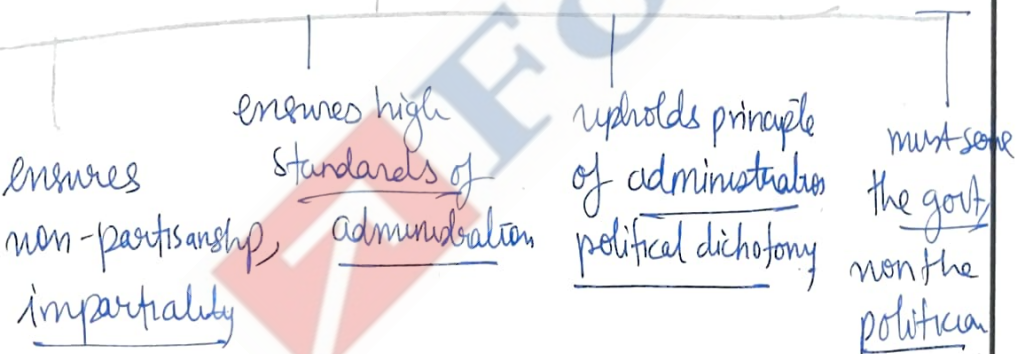 ensures
non-partisanship,
impartiality
ensures high
standards of
administration
upholds principle
of administration
political dichotomy
must serve
the govt,
non the
politician